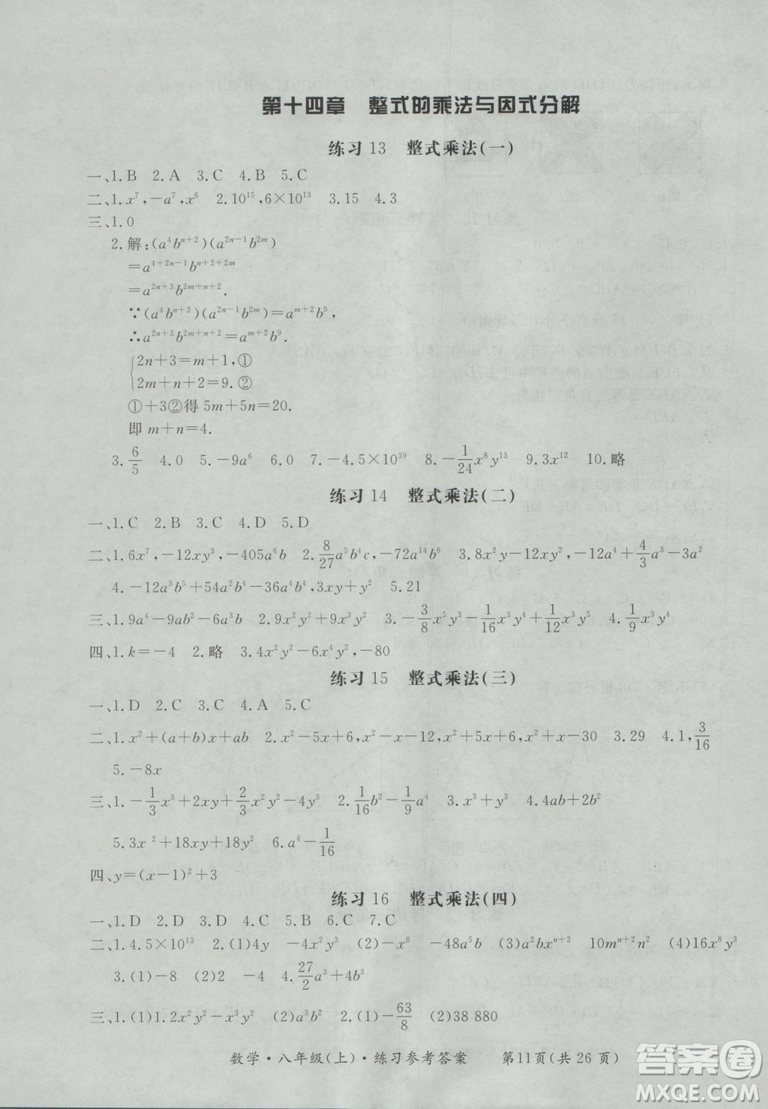 第十四章 整式的乘法与因式分解
练习13 整式乘法(一)
一、1.B 2.A 3.C 4.B 5.C
二、1.x⁷,-a⁷,x⁶ 2.10¹⁵,6×10¹³ 3.15 4.3
三、1.0
2.解:(a⁴bⁿ⁺²)(a²ⁿ⁻¹b²ᵐ)
=a⁴⁺²ⁿ⁻¹bⁿ⁺²⁺²ᵐ
=a²ⁿ⁺³b²ᵐ⁺ⁿ⁺².
∵(a⁴bⁿ⁺²)(a²ⁿ⁻¹b²ᵐ)=aᵐ⁺²b⁹,
∴a²ⁿ⁺³b²ᵐ⁺ⁿ⁺²=aᵐ⁺²b⁹.
{2n+3=m+1,①
2m+n+2=9.②
①+3②得 5m+5n=20.
即 m+n=4.
3.6/5 4.0 5.-9a⁶ 6.0 7.-4.5×10³⁹ 8.-1/24x⁸y¹³ 9.3x¹² 10.略
练习14 整式乘法(二)
一、1.C 2.B 3.C 4.D 5.D
二、1.6x⁷,-12xy³,-35a⁶b 2.8/27a⁵b⁴c,-72a¹⁴b² 3.6x²-8x,-12a⁴+4/3a³-3a²
4.-12a³b⁵+54a²b⁴-12a³b³,3xy+y² 5.21
三、1.9a⁴-9ab²-6a 2.9x²y²+9x³y 3.-3/8x⁵y-1/16x³y³+1/12x³y⁵ 4.1/9x³y⁶
四、1.k=-4 2.略 3.4x²y²-6x³y,-80
练习15 整式乘法(三)
一、1.D 2.C 3.C 4.A 5.C
二、1.x²+(a+b)x+ab 2.x²-5x+6,x²-x-6,x²+5x+6,x²+x-6 3.29 4.1,3/16
5.-8x
三、1.-1/3x³+2xy+2/3x²y-4y² 2.1/16b²-1/9a⁴ 3.x²+2x+1 4.9a²+12ab+4b²
5.3x²+18xy+18y² 6.a⁴-1/16
四、y=(x-1)²+3
练习16 整式乘法(四)
一、1.D 2.A 3.B 4.D 5.C 6.C 7.C
二、1.4.5×10¹³ 2.(1)4y -4x²y²z (2)-2x⁵y⁴ -48a⁵b⁵ (3)2abxⁿ⁺² 10m³ⁿ⁺¹n² (4)16x⁹y⁷z
3.(1)-8 (2)2 4.27/2a³+4b³ 5.18
三、1.(1)1.2x²y²-x²y³ (2)x⁴+x²+1 2.(1)-63/8 (2)38 880
数学·八年级(上)·练习参考答案 第11页(共26页)
作业精灵
MMMMMM.1010JIAJIAO.COM